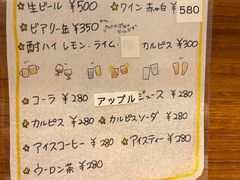 ☆生ビール ¥500 ☆ワイン 赤or白 ¥580
☆ビアリー缶 ¥350
☆酎ハイ レモン・ライム・カルピス ¥300
☆コーラ ¥280 アップルジュース ¥280
☆カルピス ¥280 ☆カルピスソーダ ¥280
☆アイスコーヒー ¥280 ☆アイスティー ¥280
☆ウーロン茶 ¥280